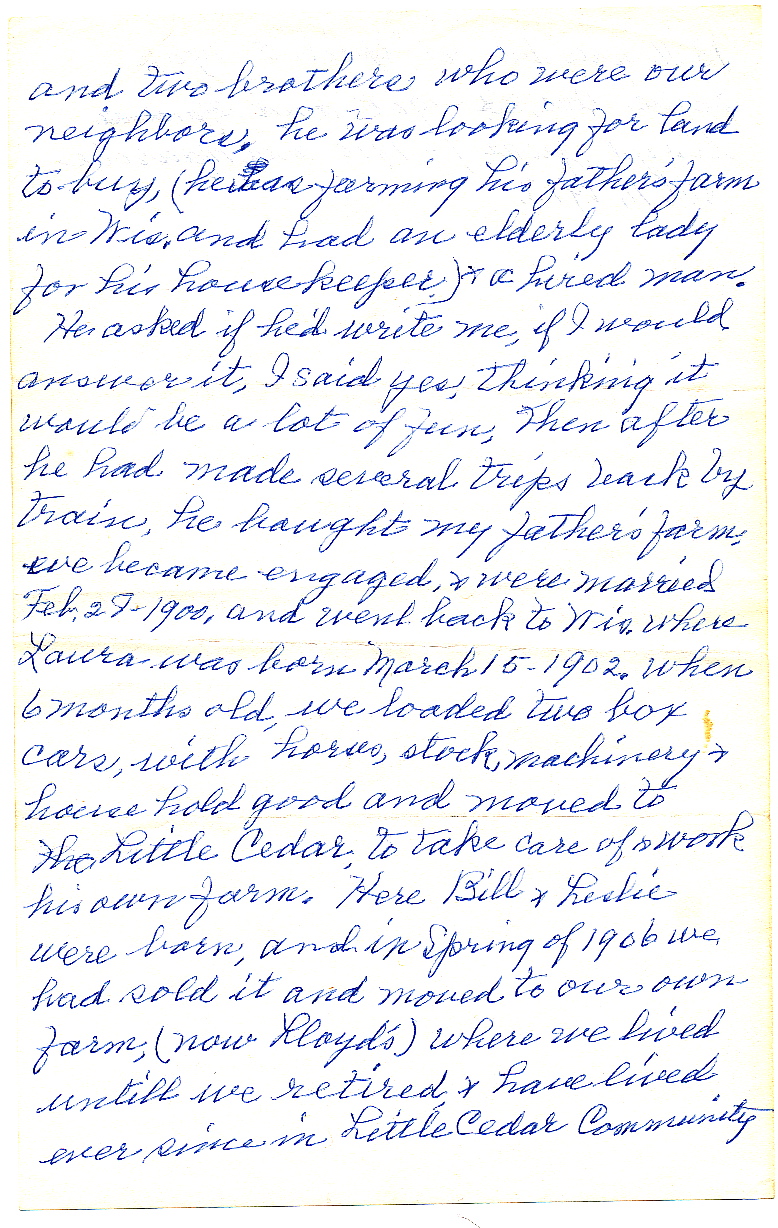 and two brothers who were our
neighbors, he was looking for land
to buy, (he was farming his father's farm
in Wis. and had an elderly lady
for his housekeeper) & a hired man.
He asked if he'd write me, if I would
answer it, I said yes, thinking it
would be a lot of fun, Then after
he had made several trips back by
train, he bought my father's farm,
we became engaged, & were married
Feb. 28-1900, and went back to Wis. where
Laura was born March 15-1902. when
6 months old, we loaded two box
cars, with horses, stock, machinery &
house hold good and moved to
the Little Cedar, to take care of & work
his own farm. Here Bill & Leslie
were born, and in Spring of 1906 we
had sold it and moved to our own
farm, (now Lloyd's) where we lived
untill we retired, & have lived
ever since in Little Cedar Community